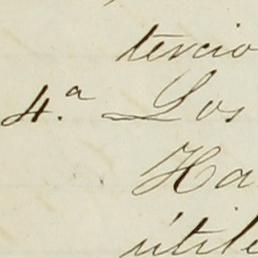 tercio
4.ª Los
Ha
útile